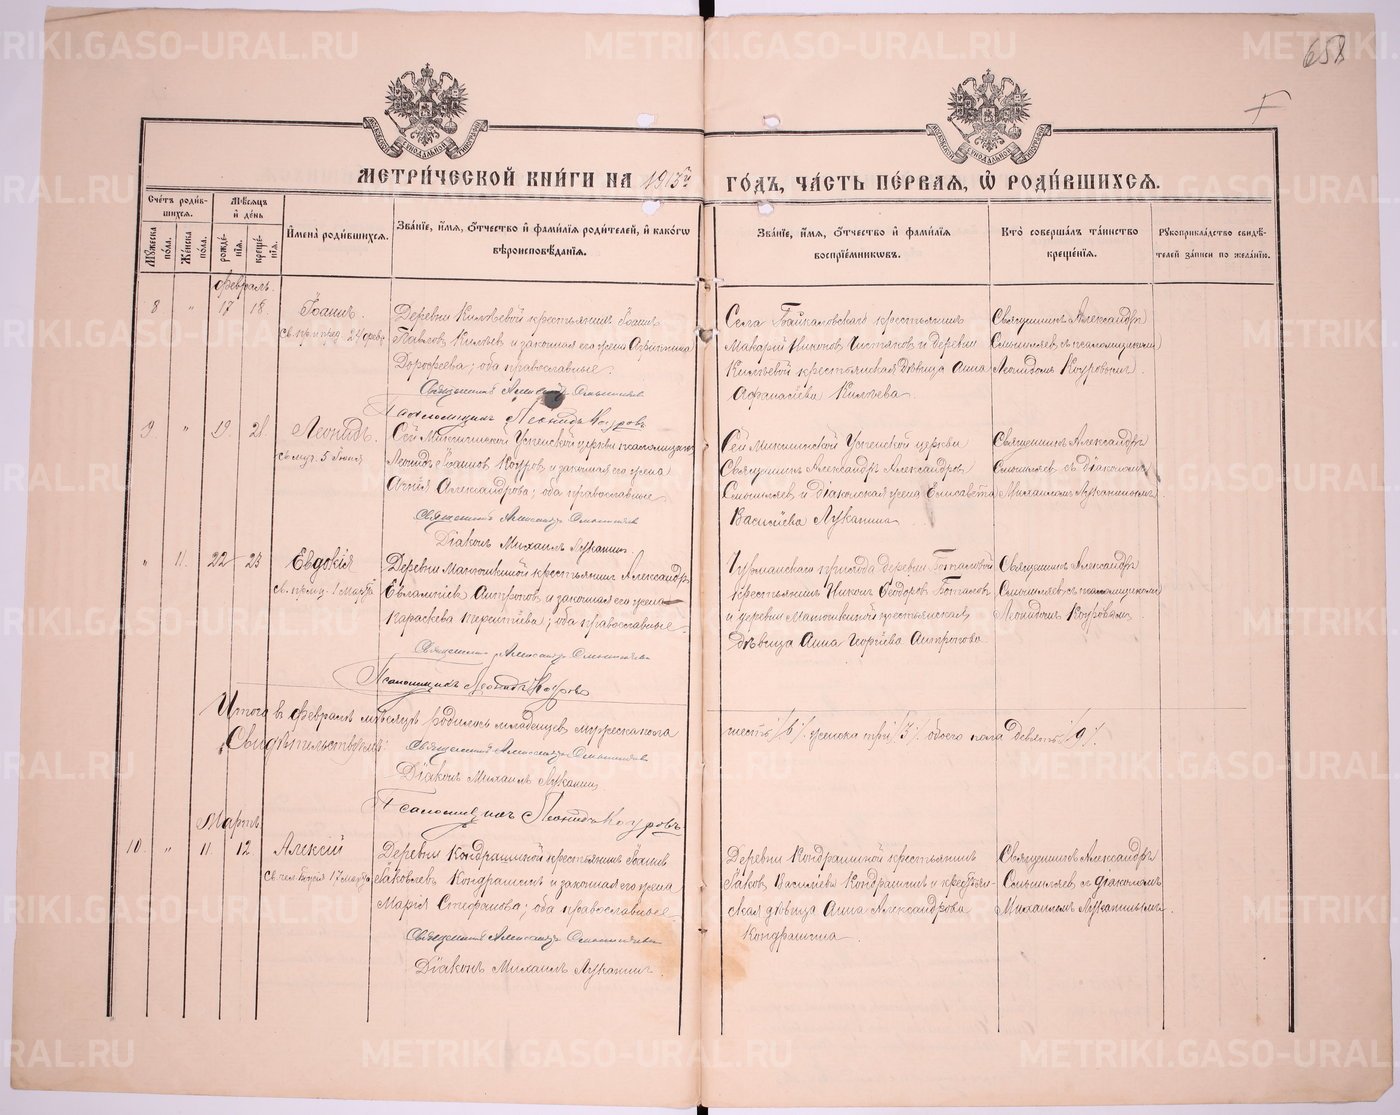 METRIKI.GASO-URAL.RU
658
МЕТРИ́ЧЕСКОЙ КНИ́ГИ НА 1913й ГО́ДЪ, ЧА́СТЬ ПЕ́РВАЯ, Ѡ РОДИ́ВШИХСЯ.
Сче́тъ роди́вшихся.
Му́жеска по́ла.
Же́нска по́ла.
Мѣ́сяцъ и де́нь
рожде́нїя.
креще́нїя.
И҆мена̀ роди́вшихся.
Зва́нїе, и҆́мя, ѻ҆́тчество и҆ фами́лїя роди́телей, и҆ како́гѡ вѣроисповѣ́данїя.
Зва́нїе, и҆́мя, ѻ҆́тчество и҆ фами́лїя воспрїе́мникѡвъ.
Кто̀ соверша́лъ та́инство креще́нїя.
Рꙋкоприкла́дство свидѣ́телей за́писи по жела́нїю.
Февраль
8 " 17 18.
Іоаннъ.
Деревни Килѣевой крестьянинъ Іоаннъ
Павловъ Килѣевъ и законная его жена Агрипина
Дорофеева; оба православные.
Священникъ Александръ Смышляевъ
Псаломщикъ Леонидъ Коуровъ
Села Байкаловскаго крестьянинъ
Макарій Никоновъ Чистяковъ и деревни
Килѣевой крестьянская дѣвица Анна
Афанасіева Килѣева.
Священникъ Александръ
Смышляевъ съ псаломщикомъ
Леонидомъ Коуровымъ.
9. " 19. 21.
Леонидъ.
Св. муч. 5 Іюня
Сей Успенской церкви псаломщикъ
Леонидъ Іоанновъ Коуровъ и законная его жена
Агнія Александрова; оба православные
Священникъ Александръ Смышляевъ
Діаконъ Михаилъ Луканинъ
Сей Успенской церкви
Священникъ Александръ Александровъ
Смышляевъ и діаконская жена Елисавета
Василіева Луканина
Священникъ Александръ
Смышляевъ съ діакономъ
Михаиломъ Луканинымъ
" 11. 22 23
Евдокія
Св. прмц. 1 Марта
Деревни крестьянинъ Александръ
Евгампіевъ Антроповъ и законная его жена
Параскева Терентіева; оба православные
Священникъ Александръ Смышляевъ
Псаломщикъ Леонидъ Коуровъ
прихода деревни Боталовой
крестьянинъ Никонъ Ѳеодоровъ Боталовъ
и деревни крестьянская
дѣвица Анна Георгіева Антропова
Священникъ Александръ
Смышляевъ съ псаломщикомъ
Леонидомъ Коуровымъ.
Итого въ Февралѣ мѣсяцѣ родилось младенцевъ мужеска пола
шесть /6/. женска три /3/. обоего пола девять /9/.
Свидѣтельствуемъ:
Священникъ Александръ Смышляевъ
Діаконъ Михаилъ Луканинъ
Псаломщикъ Леонидъ Коуровъ
Мартъ
10. " 11. 12.
Алексій
Св. чел. Божія 17 марта
Деревни Кондрашиной крестьянинъ Іоаннъ
Іаковлевъ Кондрашинъ и законная его жена
Марія Стефанова; оба православные
Священникъ Александръ Смышляевъ
Діаконъ Михаилъ Луканинъ.
Деревни Кондрашиной крестьянинъ
Іаковъ Василіевъ Кондрашинъ и крестьян-
ская дѣвица Анна Александрова
Кондрашина
Священникъ Александръ
Смышляевъ съ діакономъ
Михаиломъ Луканинымъ